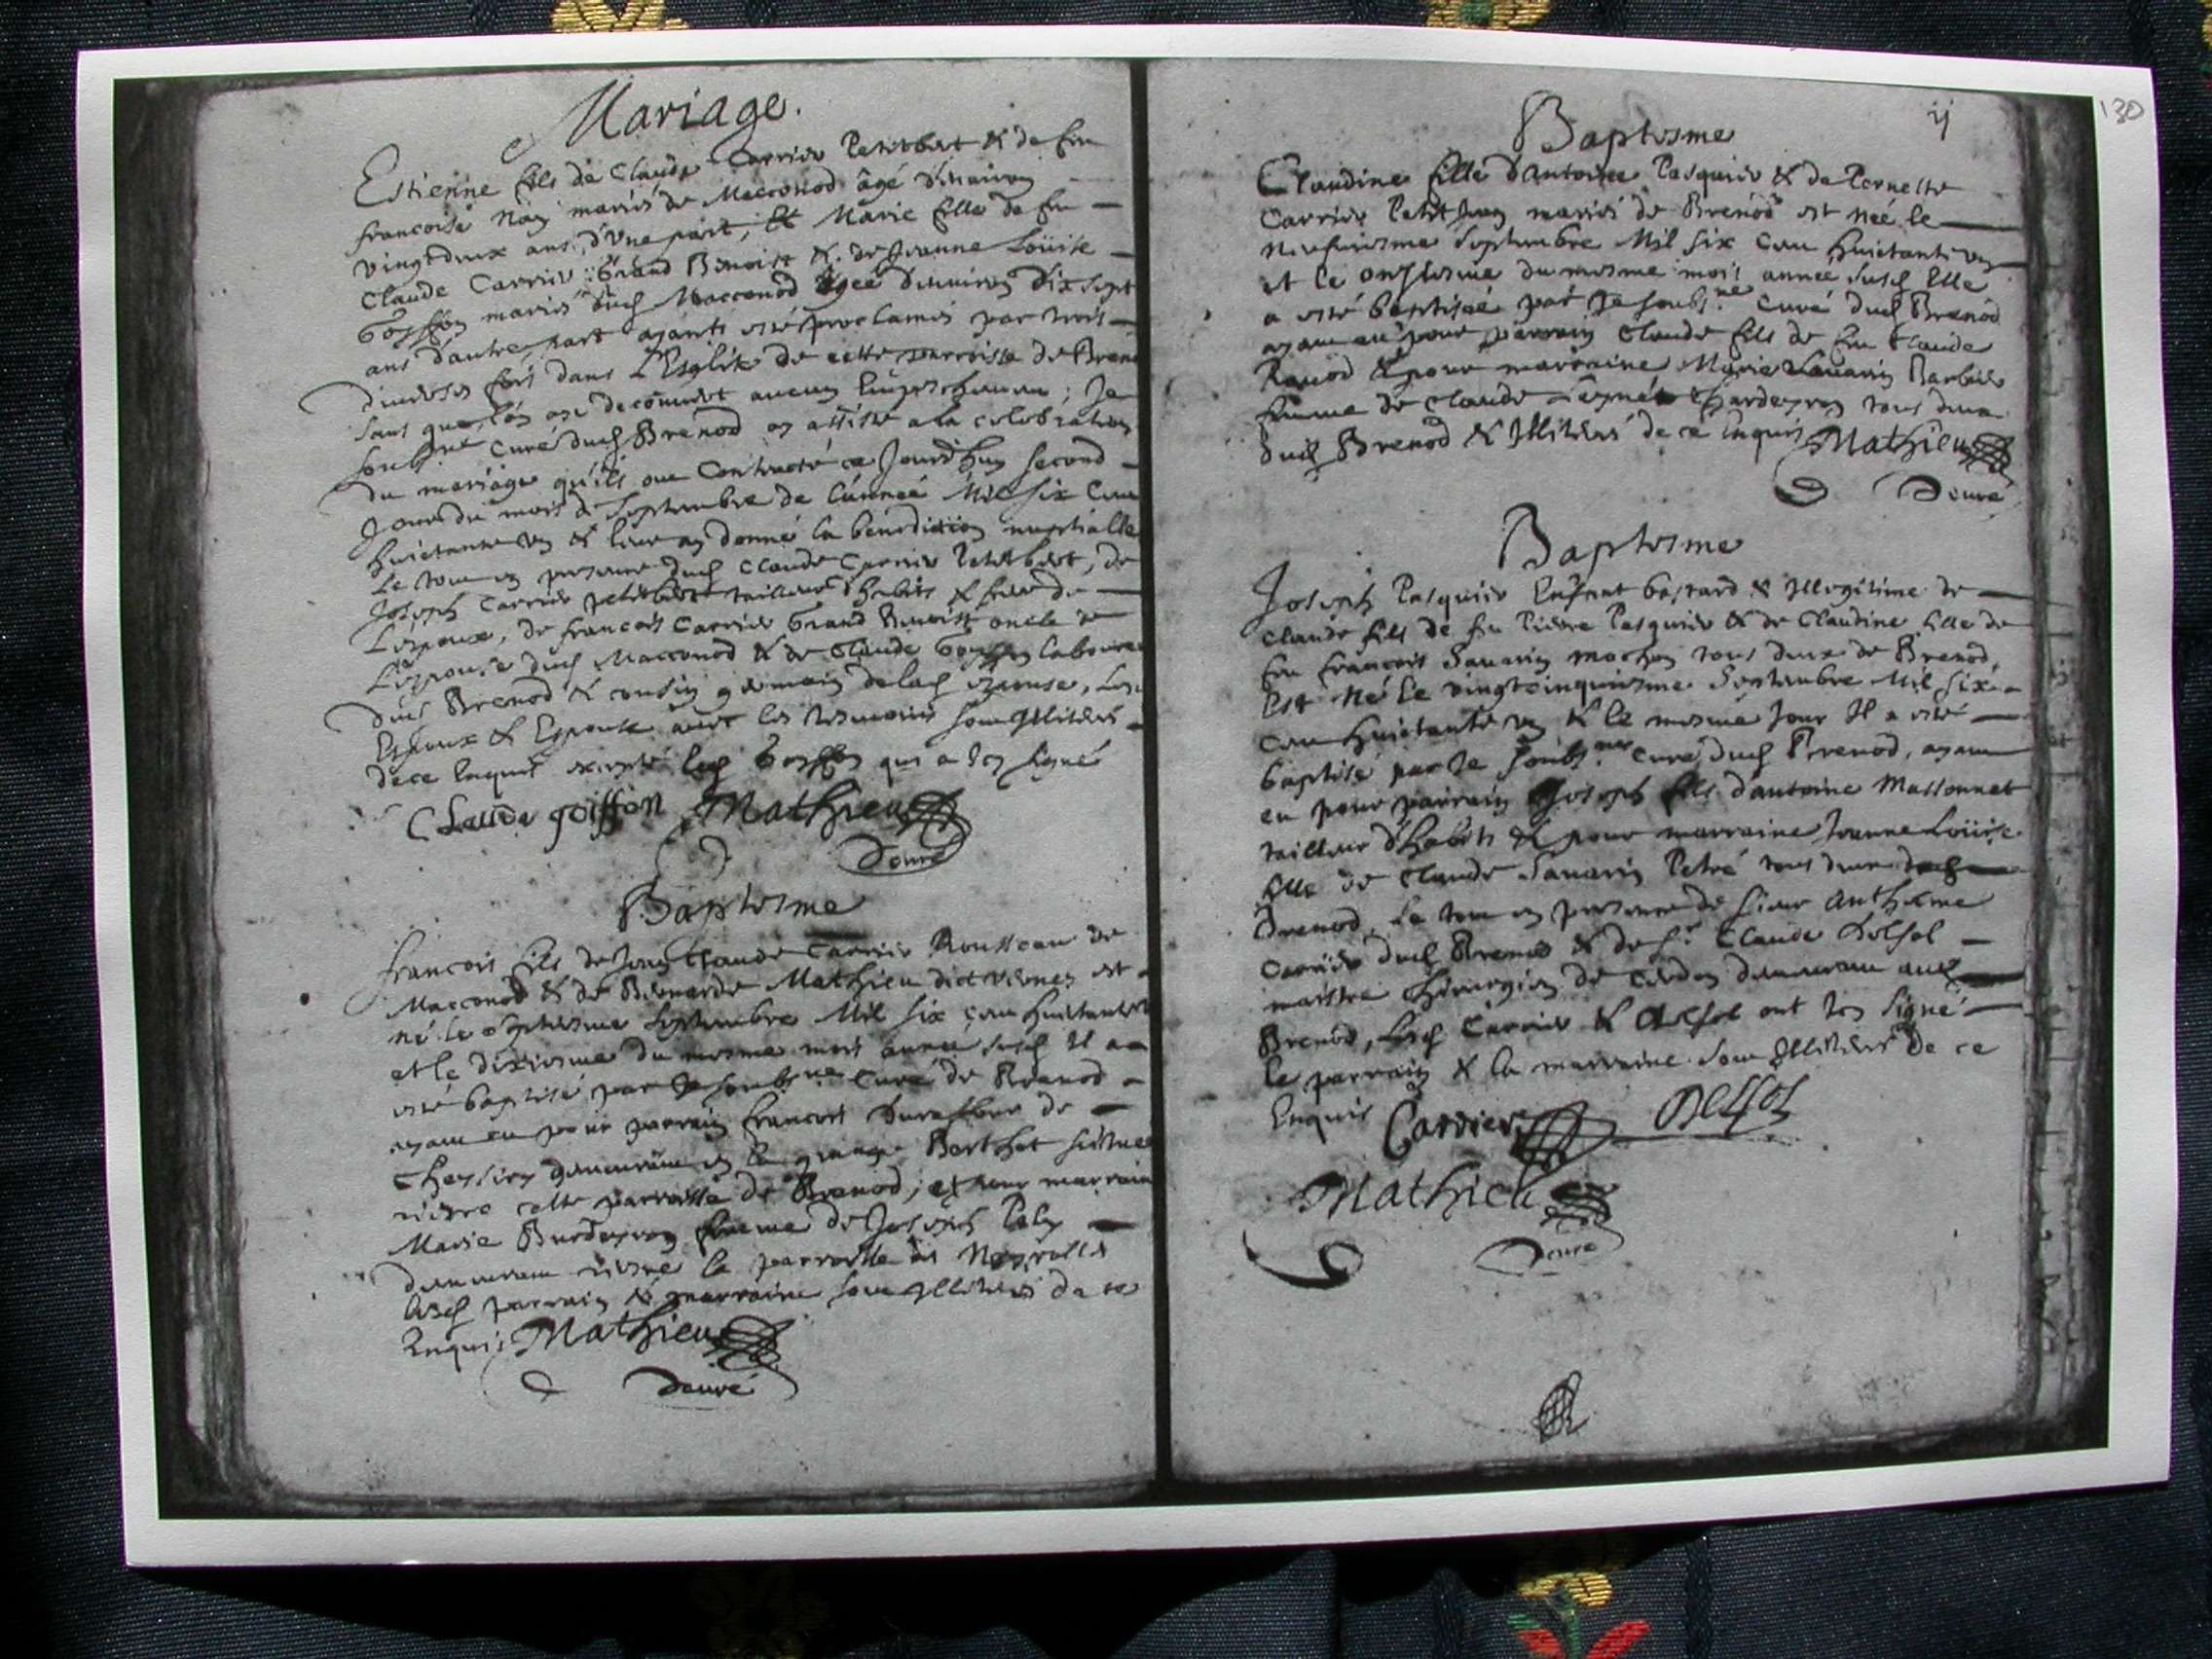 Mariage.
Estienne fils de Claude Carrier Petitbert & de feu
francoise Nay mariés de Macconod âgé d'environ
vingtdeux ans, d'une part, Et Marie fille de feu
Claude Carrier Grand Benoist & de Jeanne Loüise
Goiffon mariés dud Macconod âgée d'environ dix sept
ans d'autre part ayants esté proclamés par trois
diverses fois dans L'Esglise de cette parroisse de Breno
sans que l'on aye decouvert aucun Empeschement; Je
soubs.né Curé dud Brenod ay assisté a la celebration
du mariage qu'ils ont Contracté ce Jourd'huy second
Jour du mois de Septembre de l'année Mil six Cent
huictante un & leur ay donné la bénédiction nuptialle
Le tout en presence dud Claude Carrier Petitbert, de
Joseph Carrier petitbert tailleur d'habits & frere de
L'espoux, de francois Carrier Grand Benoist oncle de
L'espouse dud Macconod & de Claude Goiffon laboureur
dud Brenod & cousin germain de lad espouse, Les
Espoux & Espouse avec les tesmoins sont Illiteres
de ce Enquis excepté led Goiffon qui a icy signé
CLaude goiffon Mathieu
Curé
Baptesme
francois fils de Jean Claude Carrier Rousseau de
Macconod & de Bernarde Mathieu dict est
né le septiesme Septembre Mil six cent huictante un
et le dixiesme du mesme mois année susd Il a
esté baptisé par Je soubs.né Curé de Brenod
ayant eu pour parrain francois de
demeurant en la grange Berthet située
riere cette parroisse de Brenod; et pour marraine
Marie femme de Joseph
demeurant riere la parroisse de Neyrolles
lesd parrain & marraine sont Illiteres de ce
Enquis Mathieu
Curé
130
Baptesme
Claudine fille d'Antoine Pasquier & de Pernette
Carrier Petit Jean mariés de Brenod est née le
neufviesme Septembre Mil six Cent huictante un
et le onziesme du mesme mois année susd Elle
a esté baptisée par Je soubs.né Curé dud Brenod
ayant eu pour parrain Claude fils de feu Claude
Ravod & pour marraine Marie Savarin Barbier
femme de Claude tous deux
dud Brenod & Illiteres de ce Enquis Mathieu
Curé
Baptesme
Joseph Pasquier Enfant bastard & Illegitime de
Claude fils de feu Pierre Pasquier & de Claudine fille de
feu francois Savarin tous deux de Brenod,
Est Né le vingtcinquiesme Septembre Mil six
Cent huictante un & le mesme Jour Il a esté
baptisé par Je soubs.né Curé dud Brenod, ayant
eu pour parrain Joseph fils d'antoine Massonnet
tailleur d'habits & pour marraine Jeanne Loüise
fille de Claude Savarin Petré tous deux dud
Brenod, Le tout en presence de sieur Anthelme
Carrier dud Brenod & de s.r Claude Delsol
maistre Chirurgien de Cerdon demeurant aud
Brenod, Lesd Carrier & Delsol ont icy signé
Le parrain & la marraine sont Illiteres de ce
Enquis Carrier Delsol
Mathieu
Curé